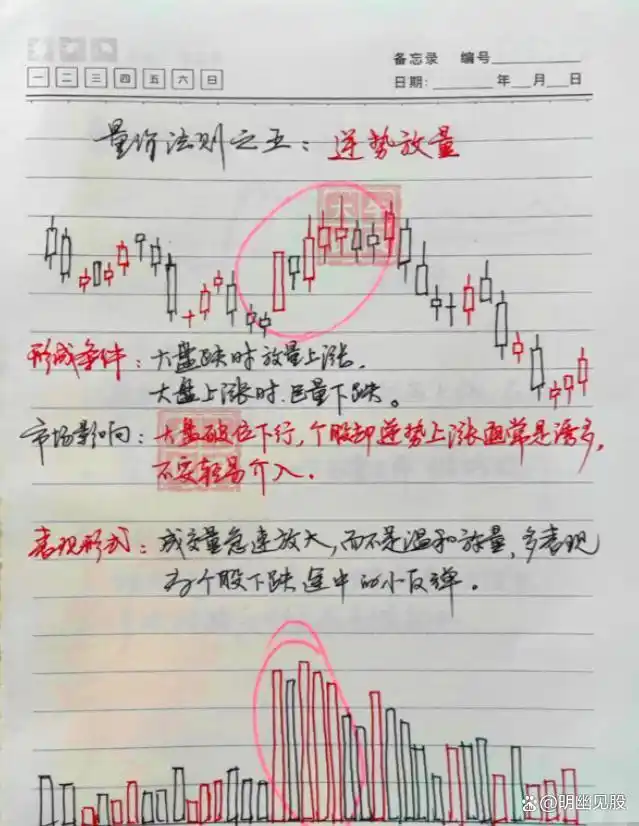 备忘录 编号
一 二 三 四 五 六 日
日期: 年 月 日
量价法则之五：逆势放量
形成条件：大盘跌时放量上涨，
大盘上涨时巨量下跌。
市场影响：大盘破位下行，个股却逆势上涨通常是诱多，
不要轻易介入。
表现形式：成交量急速放大，而不是温和放量，多表现
为个股下跌途中的小反弹。
明幽见股